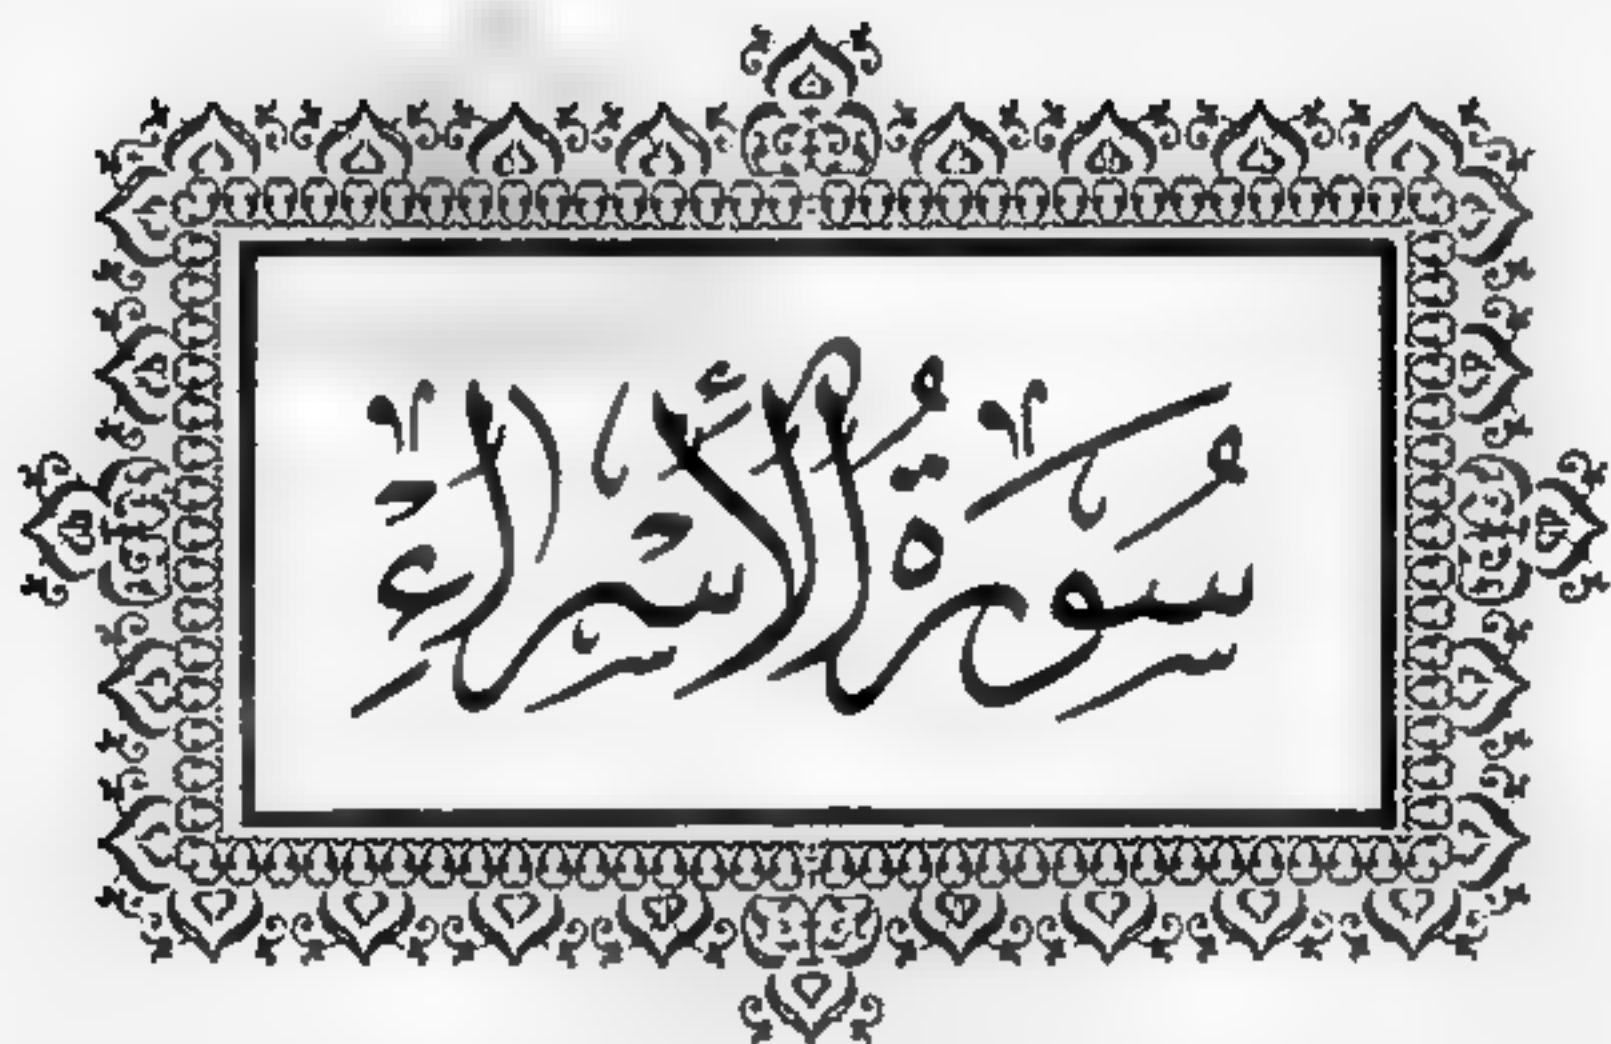 سُورَةُ الْأَسْرَاءِ